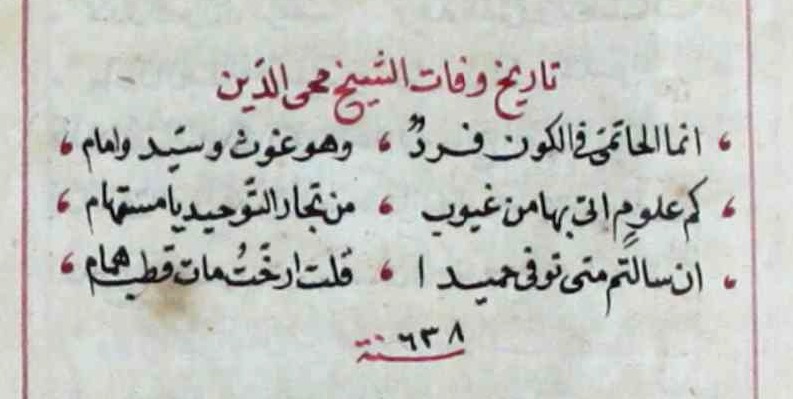 تاريخ وفات الشيخ محى الدّين
انما الحاتمىّ فى الكون فردٌ ، وهو غوث وسيّد وامام ،
كم علومٍ اتى بها من غيوب ، من بحار التّوحيد يا مستهام ،
ان سالتم متى توفى حميدا ، قلت ارخّتُ مات قطب همام ،
سنة ٦٣٨